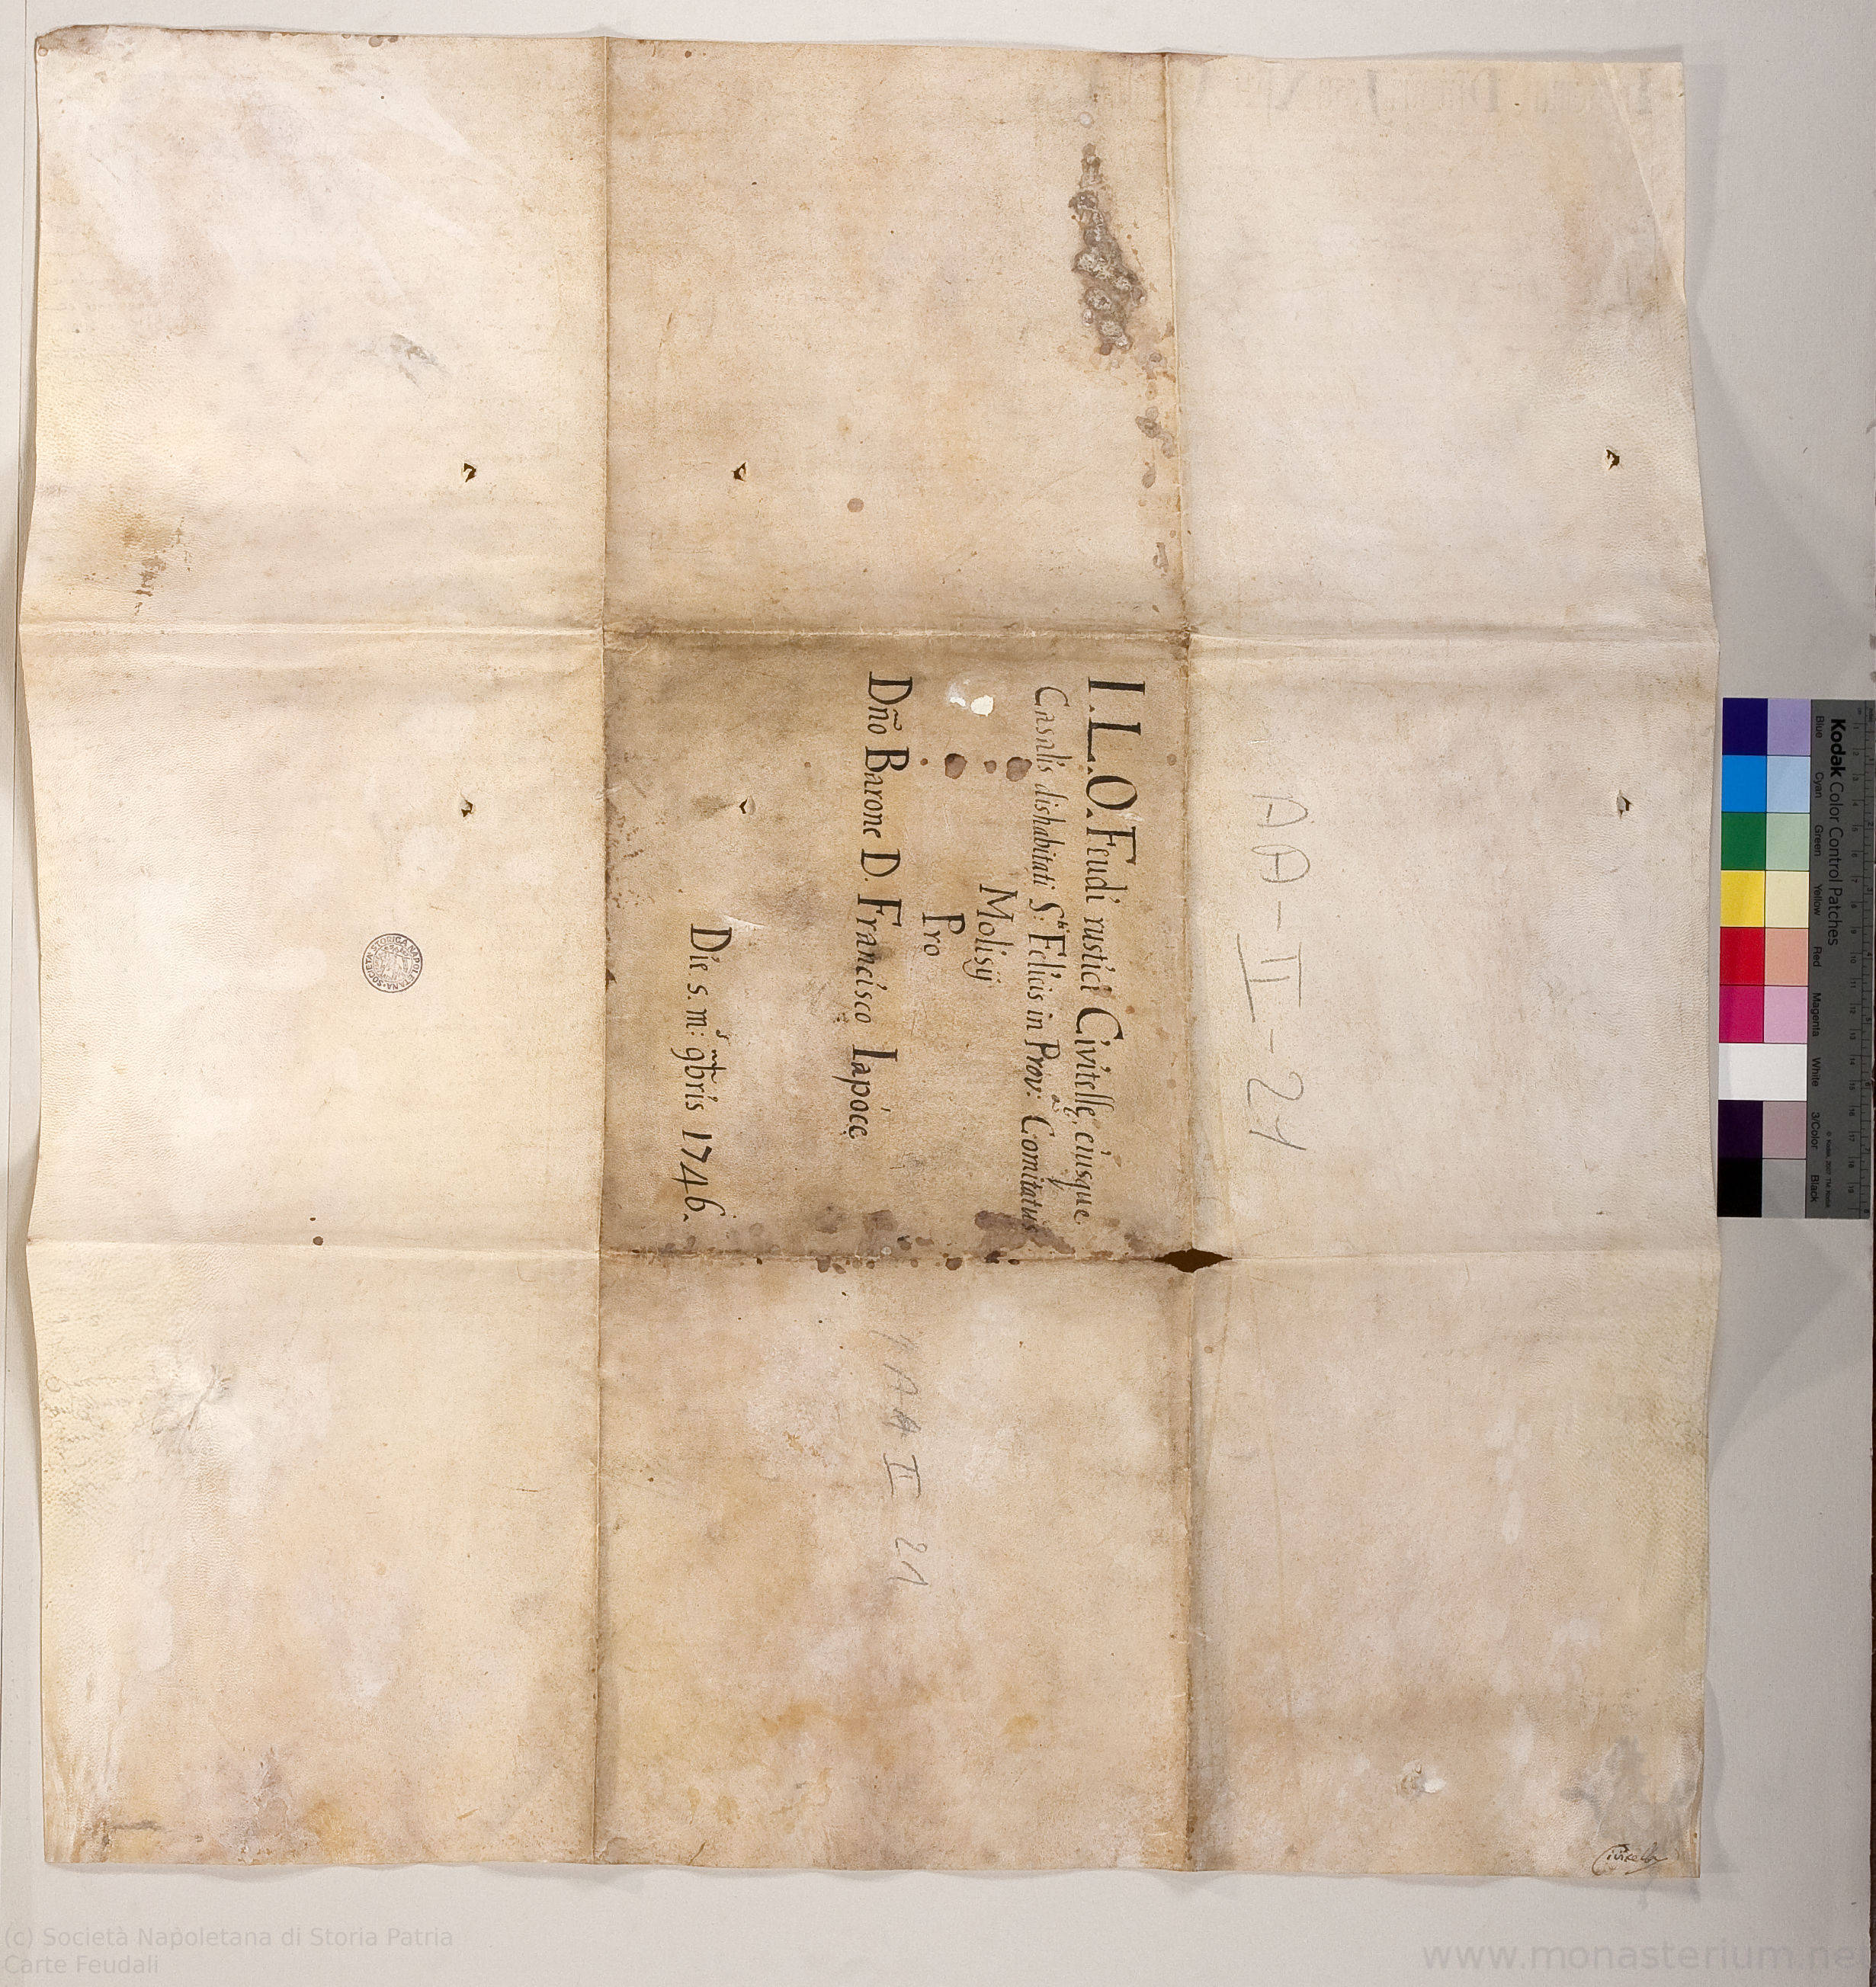 I.L.O. Feudi rustici Civitellę, eiusque
Casalis dishabitati S.ti Felicis in Prov:a Comitatus
Molisij
Pro
Dño Barone D. Francisco Iapoce
Die 5. m: 9bris 1746.
AA-II-21
AA II 21
Civitella
SOCIETÀ STORICA NAPOLETANA
Kodak Color Control Patches
Blue Cyan Green Yellow Red Magenta White 3/Color Black
(c) Società Napoletana di Storia Patria
Carte Feudali
www.monasterium.ne